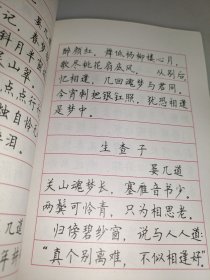 记,春梦
斜月半
山翠。
点点行
独自怜
泪。
几道
醉颜红,舞低杨柳楼心月,
歌尽桃花扇底风。 从别后,
忆相逢,几回魂梦与君同,
今宵剩把银釭照,犹恐相逢
是梦中。
生查子
晏几道
关山魂梦长,塞雁音书少,
两鬓可怜青,只为相思老。
归傍碧纱窗,说与人人道:
“真个别离难,不似相逢好”